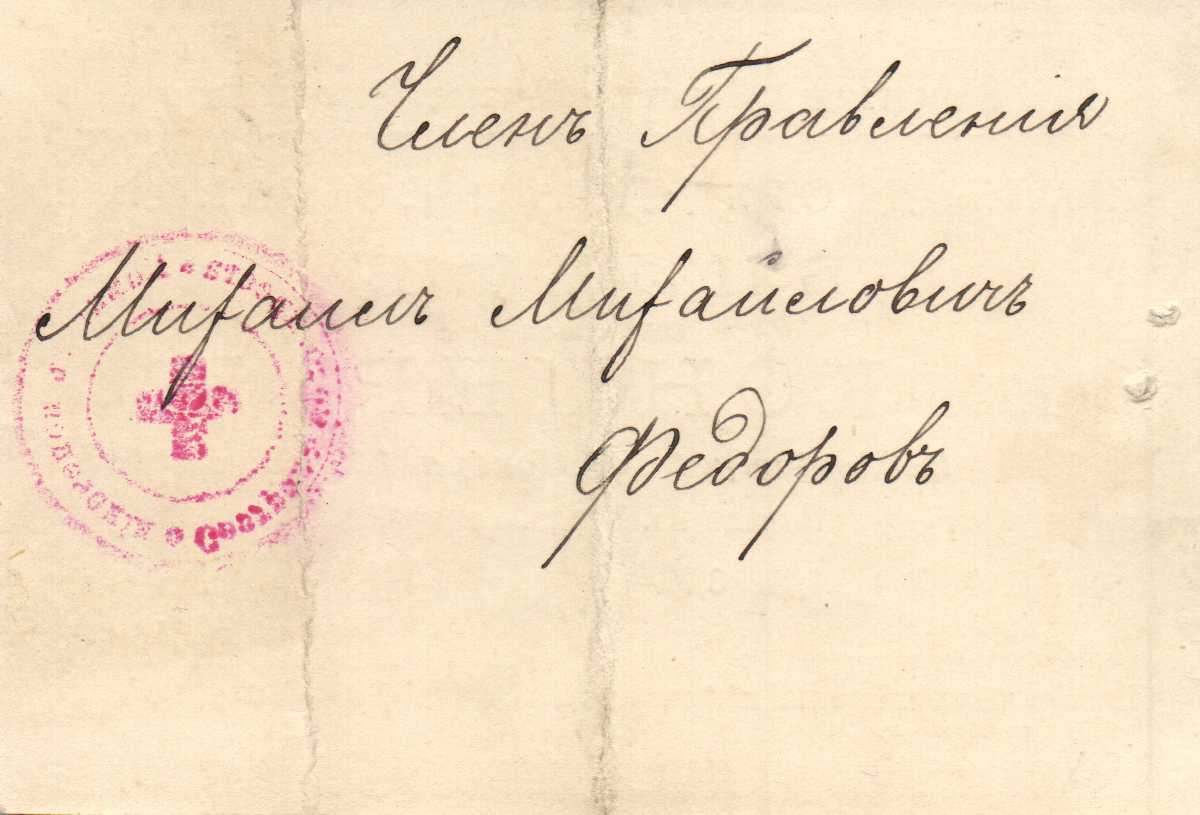 Членъ Правленія
Михаилъ Михаиловичъ
Федоровъ